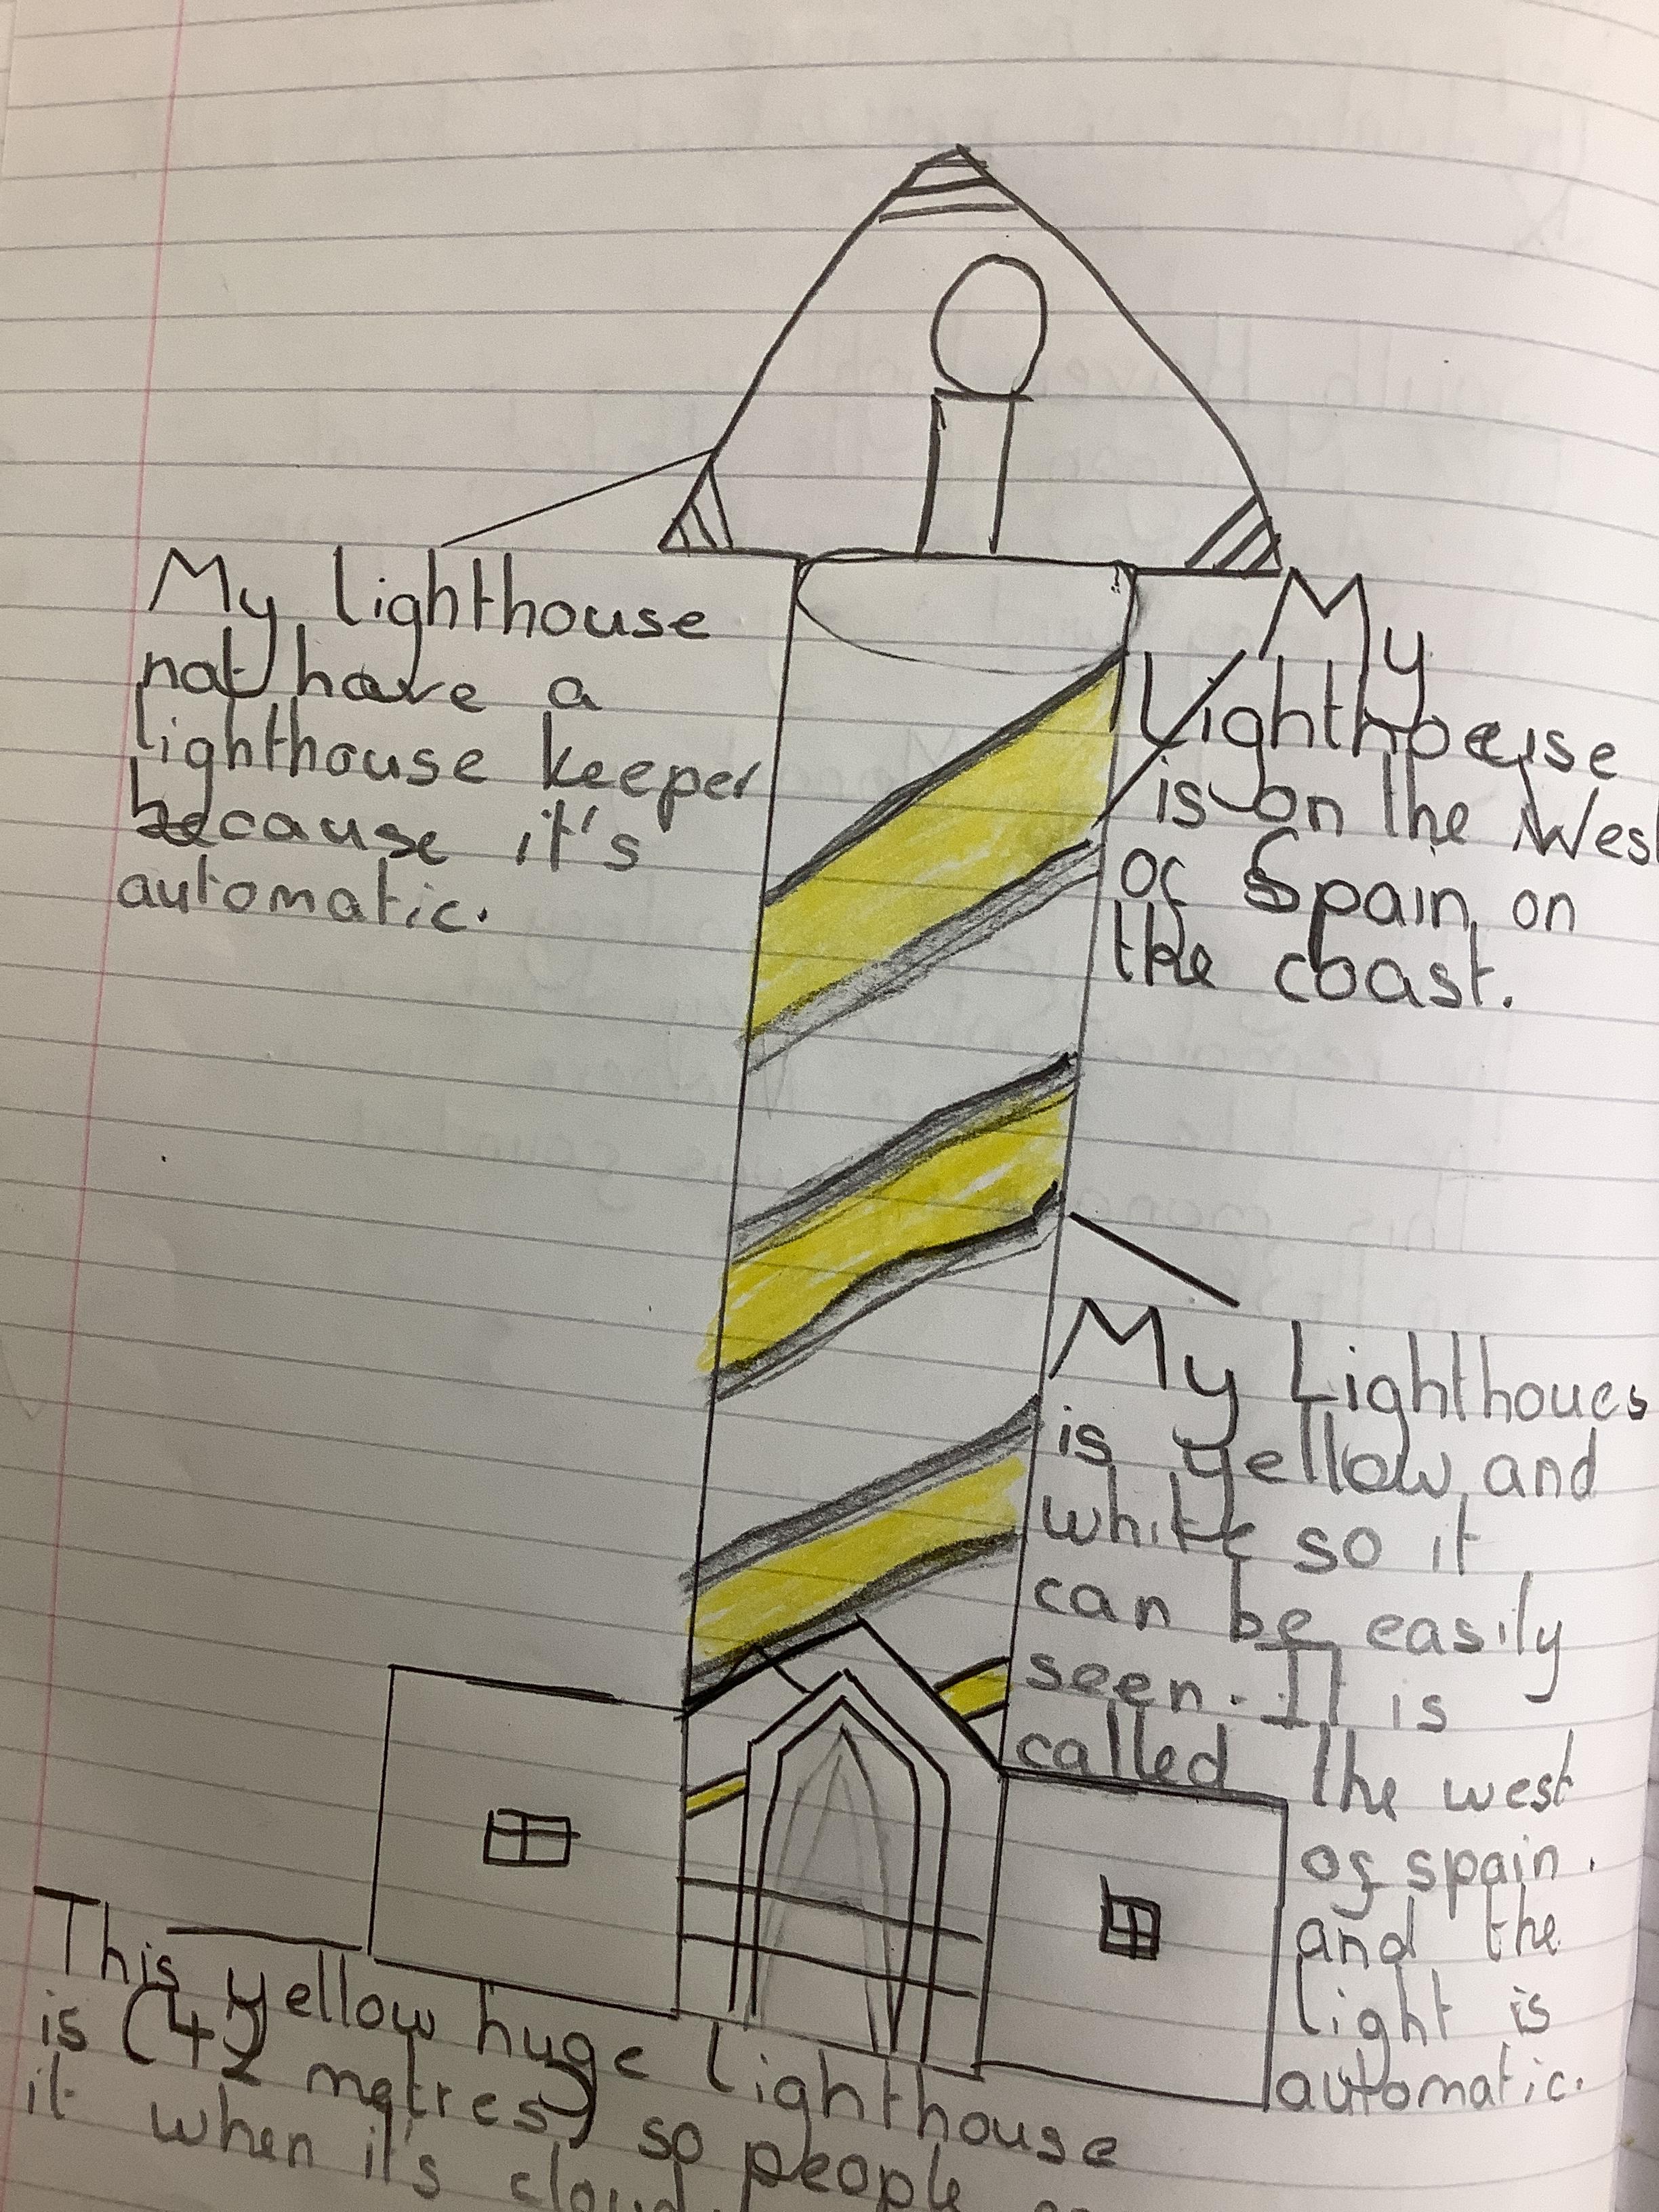 My lighthouse
not have a
lighthouse keeper
because it's
automatic.
My
Lighthouse
is on the West
of Spain on
the coast.
My Lighthoues
is yellow and
white so it
can be easily
seen. It is
called the west
of spain.
and the
light is
automatic.
This yellow huge lighthouse
is (42 metres) so people
it when it's cloud